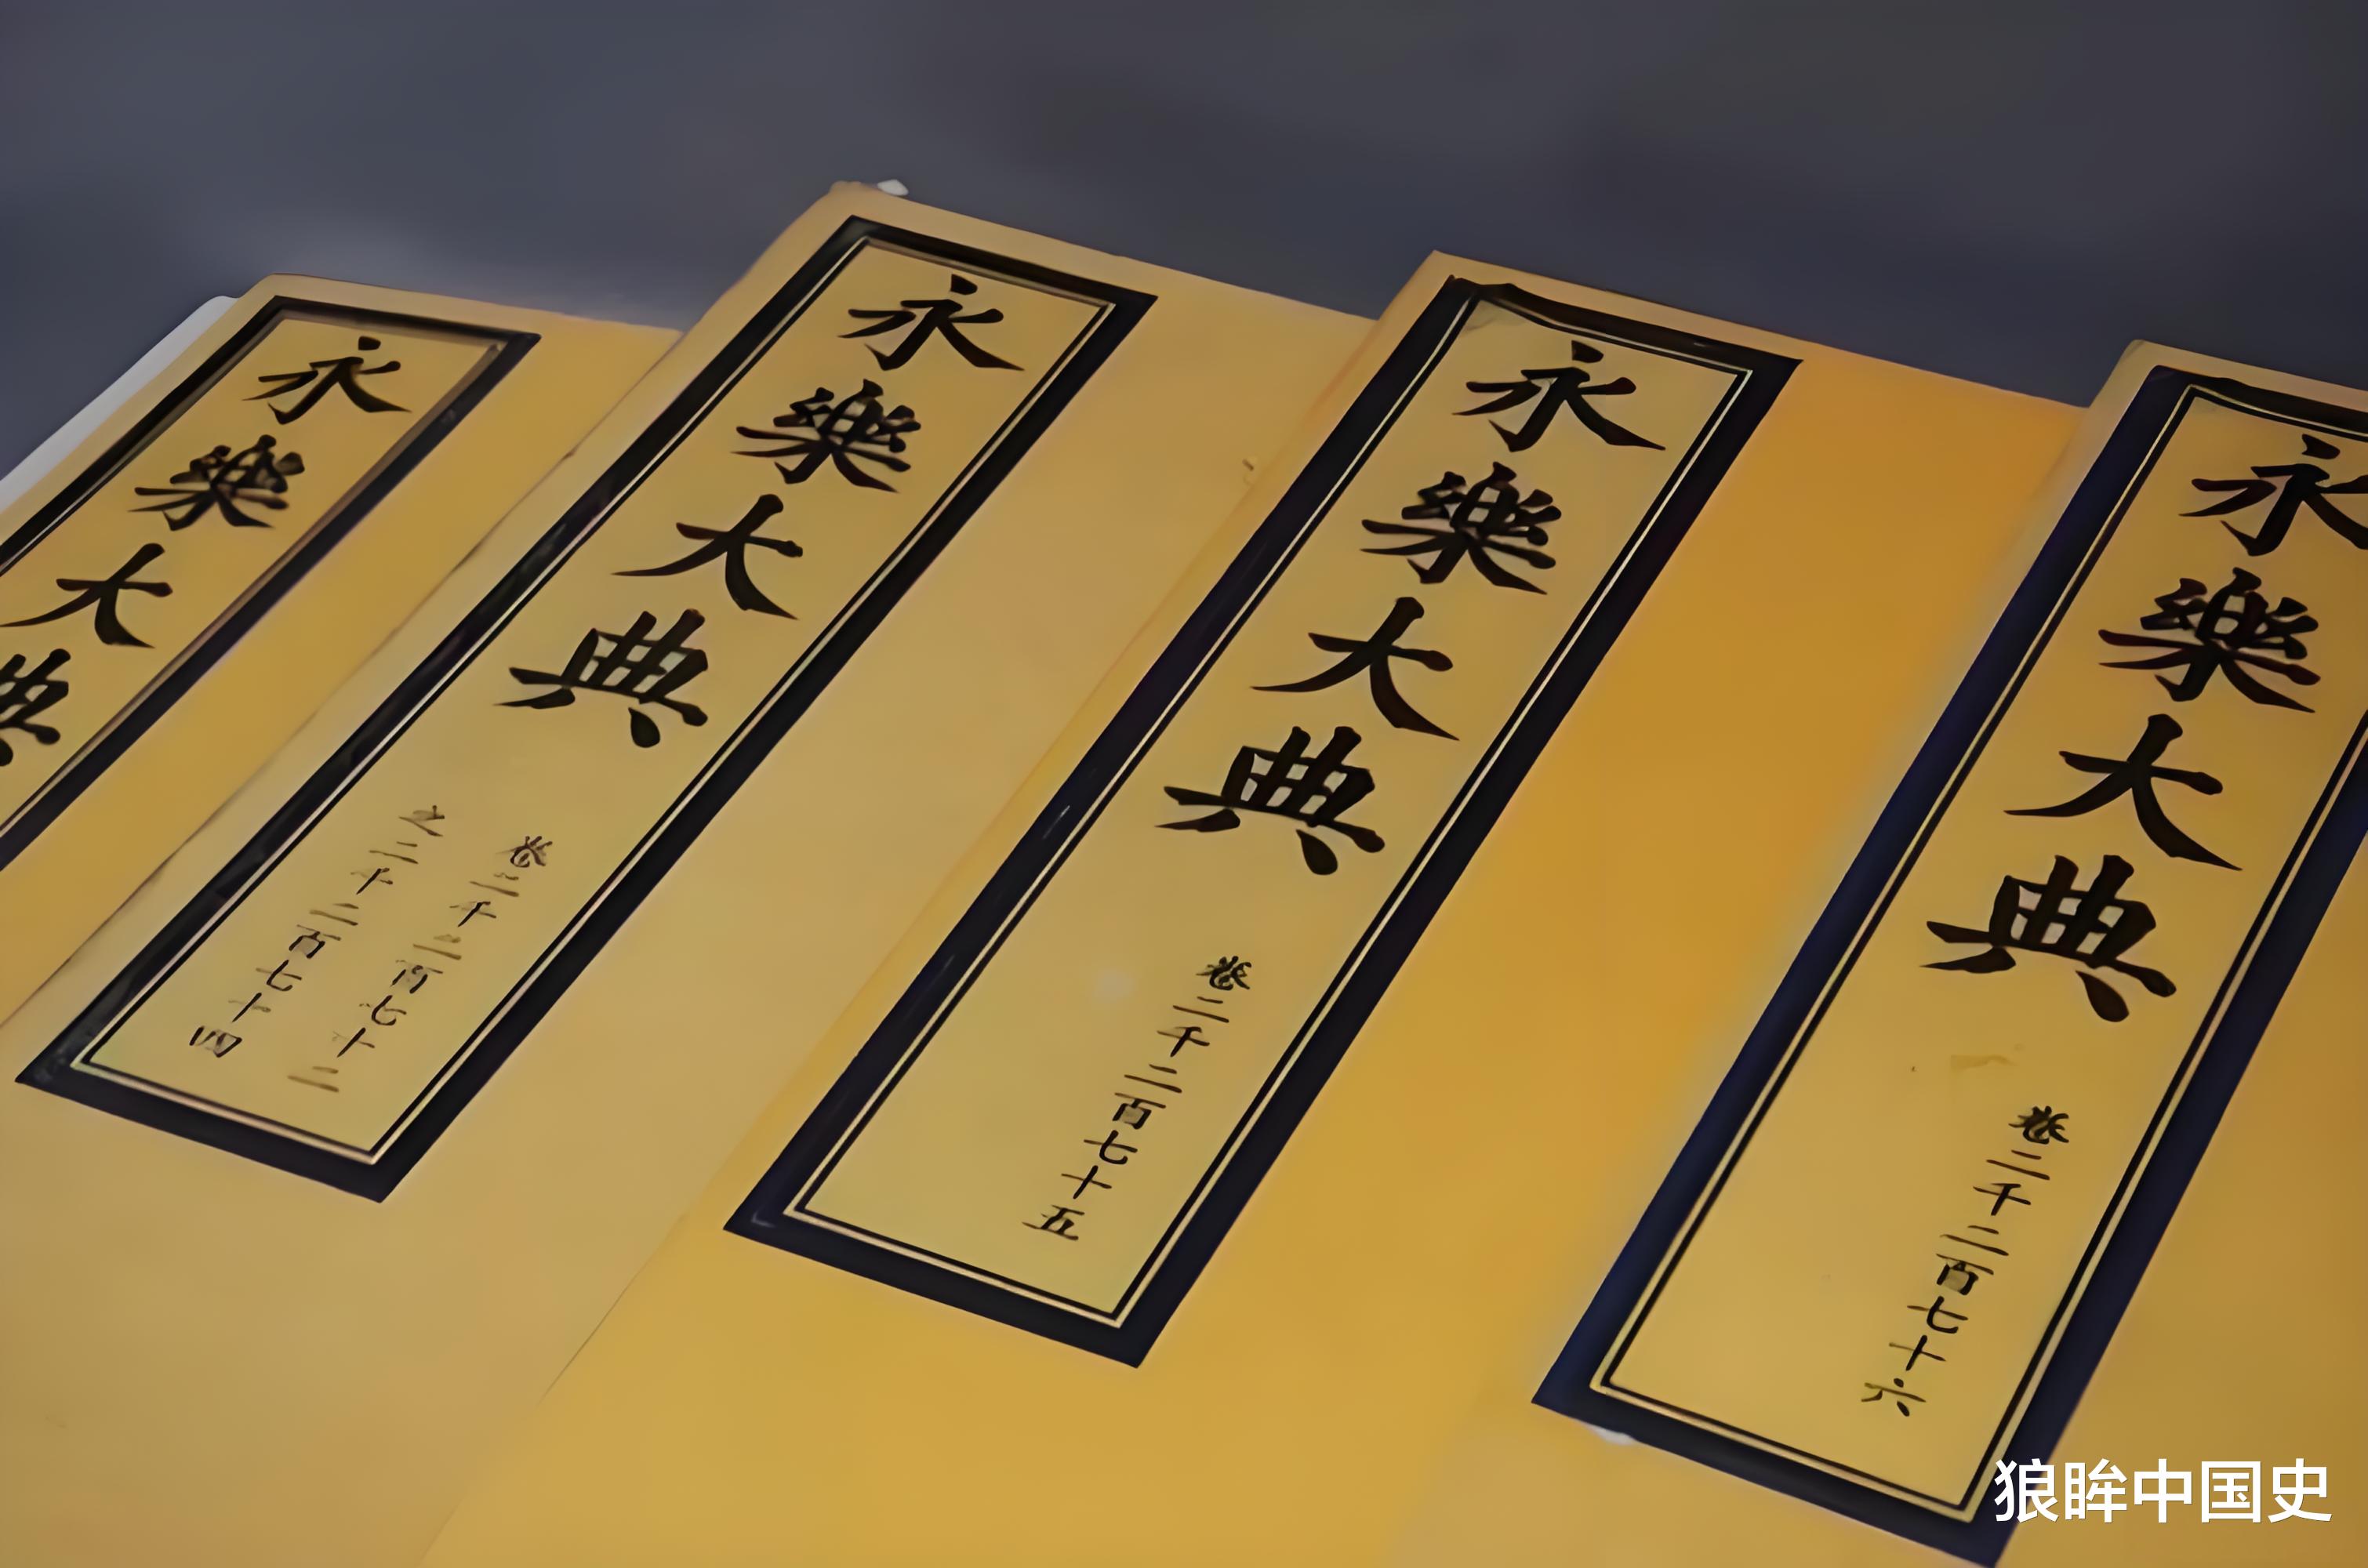 永樂大典
永樂大典
卷二千二百七十二
之二千二百七十四
永樂大典
卷二千二百七十五
永樂大典
卷二千二百七十六
狼眸中国史